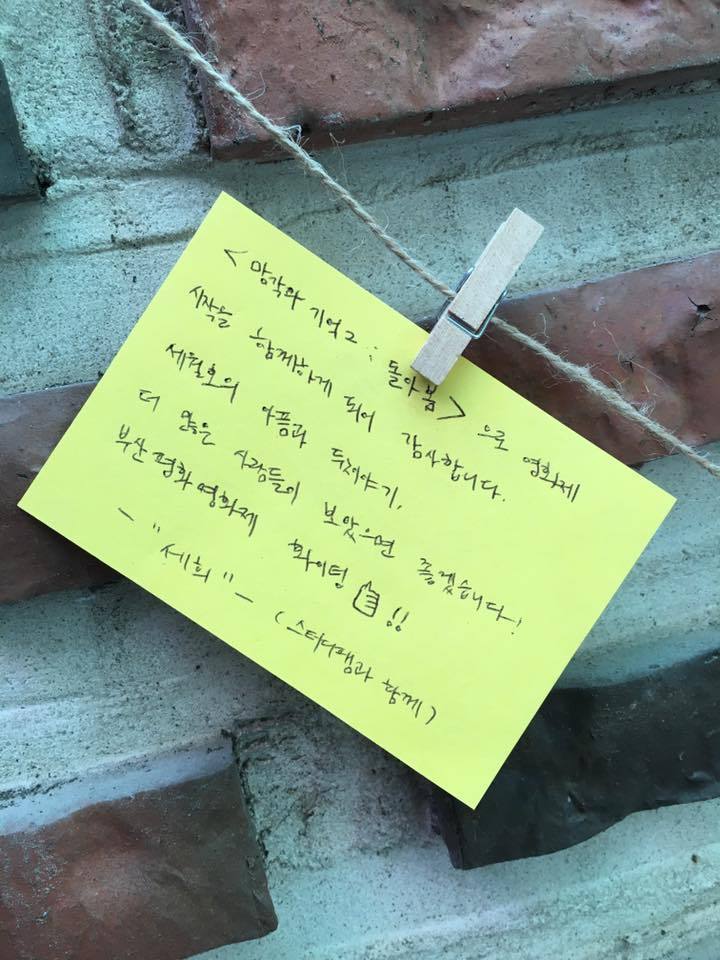 <망각과 기억2 : 돌아봄>으로 영화제
시작을 함께하게 되어 감사합니다.
세월호의 아픔과 뒷이야기,
더 많은 사람들이 보았으면 좋겠습니다!
부산평화영화제 화이팅 !!
- "세희" - (스터디팸과 함께)